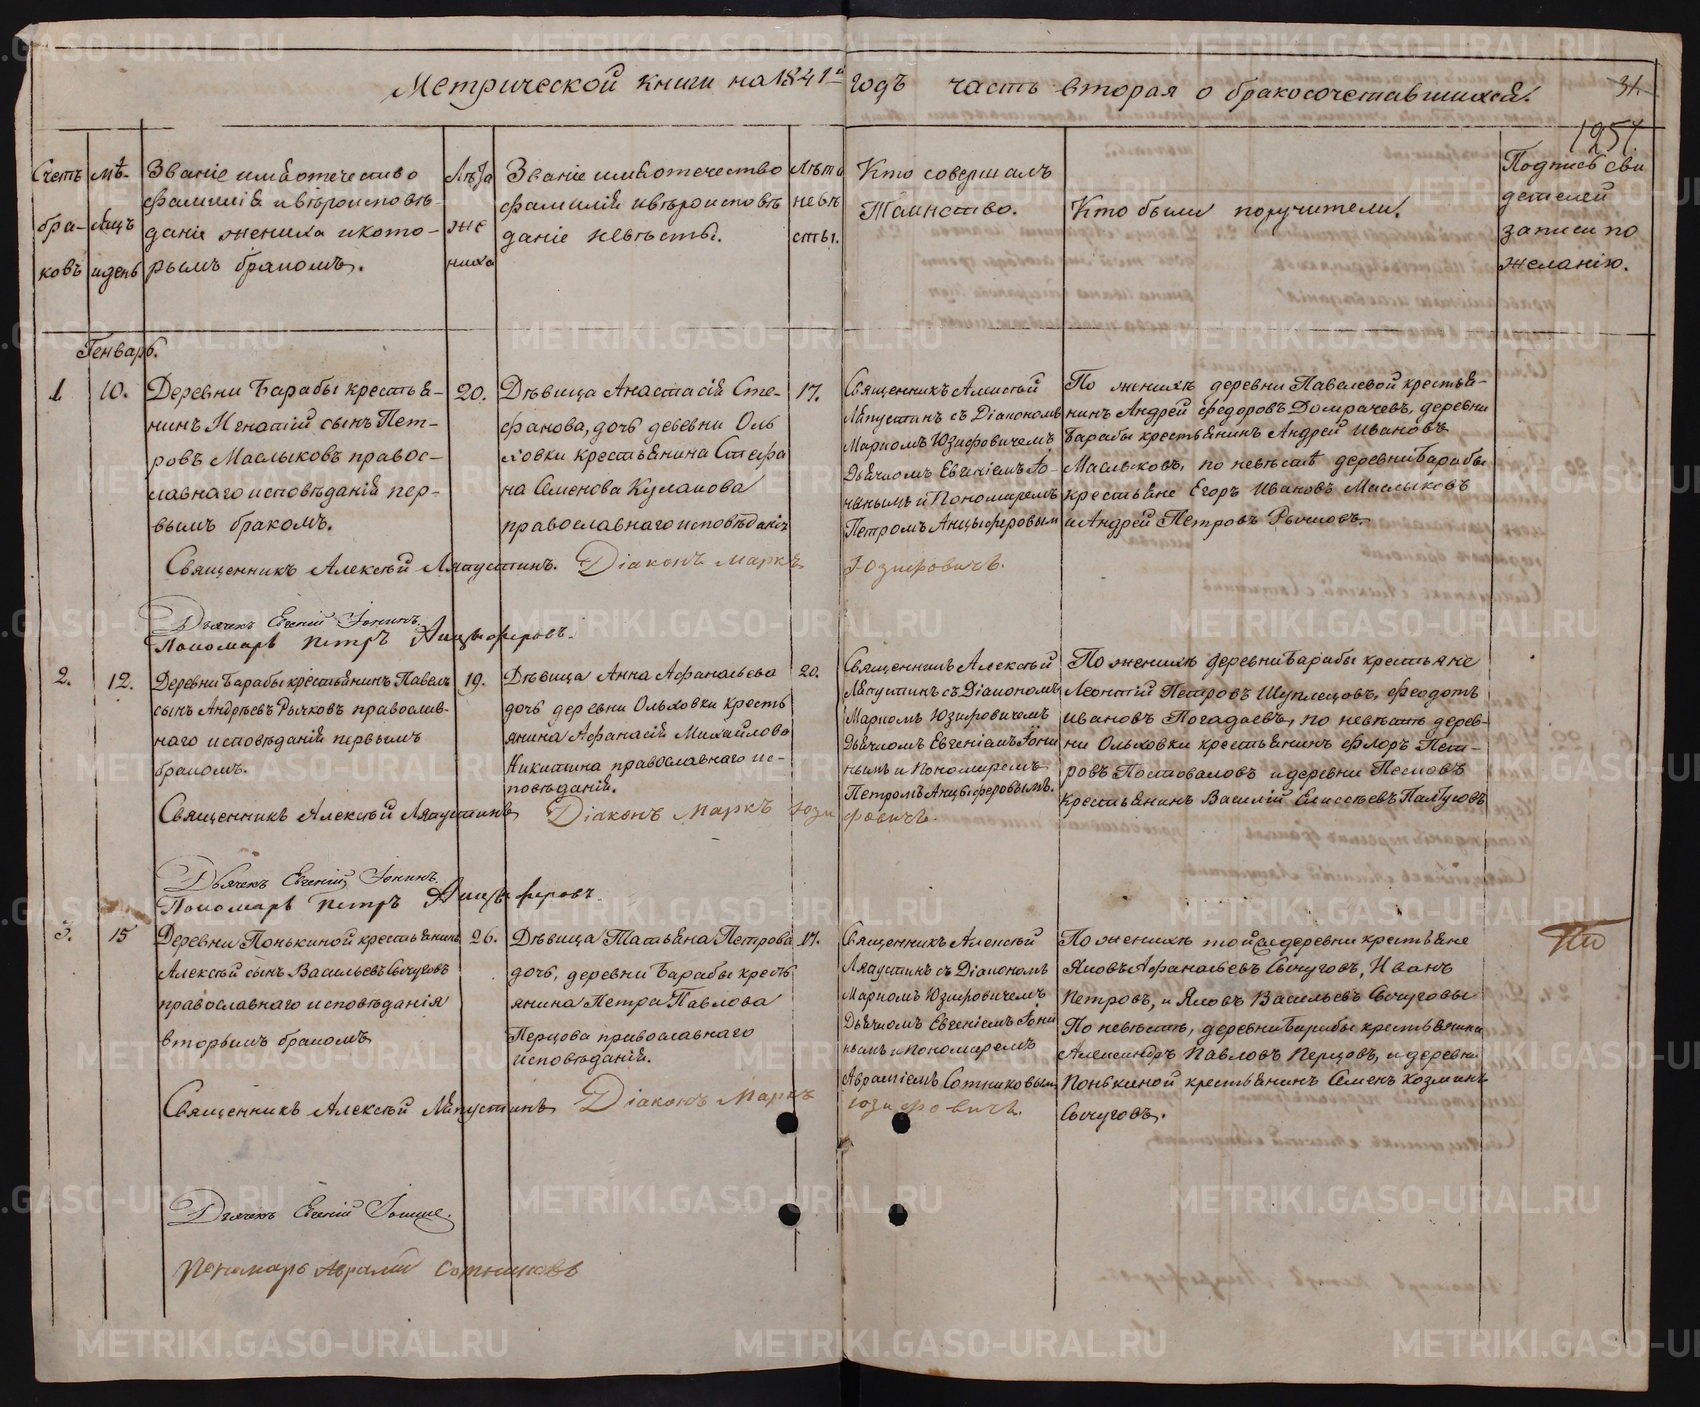 Метрической книги на 1841й годъ часть вторая о бракосочетавшихся.
31.
195/.
Счетъ бра-ковъ
мѣ-сяцъ и день
Званіе имя отечество
фамилія и вѣроисповѣ-
даніе жениха и кото-
рымъ бракомъ.
Лѣта же ниха
Званіе имя отечество
фамилія и вѣроисповѣ
даніе невѣсты.
Лѣта невѣ сты.
Кто совершалъ
Таинство.
Кто были поручители.
Подпись сви
детелей
записи по
желанію.
Генварь.
1
10.
Деревни Барабы крестья-
нинъ Игнатій сынъ Пет-
ровъ Маслыковъ правос-
лавнаго исповѣданія пер-
вымъ бракомъ.
20.
Дѣвица Анастасія Сте-
фанова, дочь девевни Оль
ховки крестьянина Стефа
на Семенова Кулакова
православнаго исповѣданія
17.
Священникъ Алексѣй
Ляпустинъ съ Діакономъ
Маркомъ Юзифовичемъ
Дьячкомъ Евгеніемъ Іо-
нинымъ и Пономаремъ
Петромъ Анцыферовым
По женихѣ деревни Павалевой крестья-
нинъ Андрей Федоровъ Домрачевъ, деревни
Барабы крестьянинъ Андрей Ивановъ
Маслыковъ, по невѣстѣ деревни Барабы
крестьяне Егоръ Ивановъ Маслыковъ
и Андрей Петровъ Рычковъ.
Священникъ Алексѣй Ляпустинъ. Діаконъ Маркъ Юзифовичъ.
Дьячекъ Евгеній Іонинъ.
Пономарь Петръ Анцыферовъ.
2.
12.
Деревни Барабы крестьянинъ Павелъ
сынъ Андреевъ Рычковъ православ-
наго исповѣданія первымъ
бракомъ.
19.
Дѣвица Анна Афанасьева
дочь деревни Ольховки кресть
янина Афанасія Михайлова
Никитина православнаго ис-
повѣданія.
20.
Священникъ Алексѣй
Ляпустинъ съ Діакономъ
Маркомъ Юзифовичемъ
Дьячкомъ Евгеніемъ Іони
нымъ и Пономаремъ
Петромъ Анцыферовымъ.
По женихѣ деревни Барабы крестьяне
Леонтій Петровъ Шуплецовъ, Феодотъ
Ивановъ Погадаевъ, по невѣстѣ дерев-
ни Ольховки крестьянинъ Флоръ Пет-
ровъ Постоваловъ и деревни
крестьянинъ Василій Елисѣевъ
Священникъ Алексѣй Ляпустинъ Діаконъ Маркъ Юзифовичъ.
Дьячекъ Евгеній Іонинъ.
Пономарь Петръ Анцыферовъ.
3.
15
Деревни Понькиной крестьянинъ
Алексѣй сынъ Васильевъ Сычуговъ
православнаго исповѣданія
вторымъ бракомъ
26.
Дѣвица Татьяна Петрова
дочь, деревни Барабы кресть
янина Петра Павлова
Перцова православнаго
исповѣданія.
17.
Священникъ Алексѣй
Ляпустинъ съ Діакономъ
Маркомъ Юзифовичемъ
Дьячкомъ Евгеніемъ Іони
нымъ и Пономаремъ
Авраміемъ Сотниковымъ
По женихѣ той же деревни крестьяне
Яковъ Афанасьевъ Сычуговъ, Иванъ
Петровъ, и Яковъ Васильевъ Сычуговы
По невѣстѣ, деревни Барабы крестьянинъ
Александръ Павловъ Перцовъ, и деревни
Понькиной крестьянинъ Семенъ Козминъ
Сычуговъ.
Священникъ Алексѣй Ляпустинъ Діаконъ Маркъ Юзифовичъ.
Дьячекъ Евгеній Іонинъ.
Пономарь Аврамій Сотниковъ
METRIKI.GASO-URAL.RU